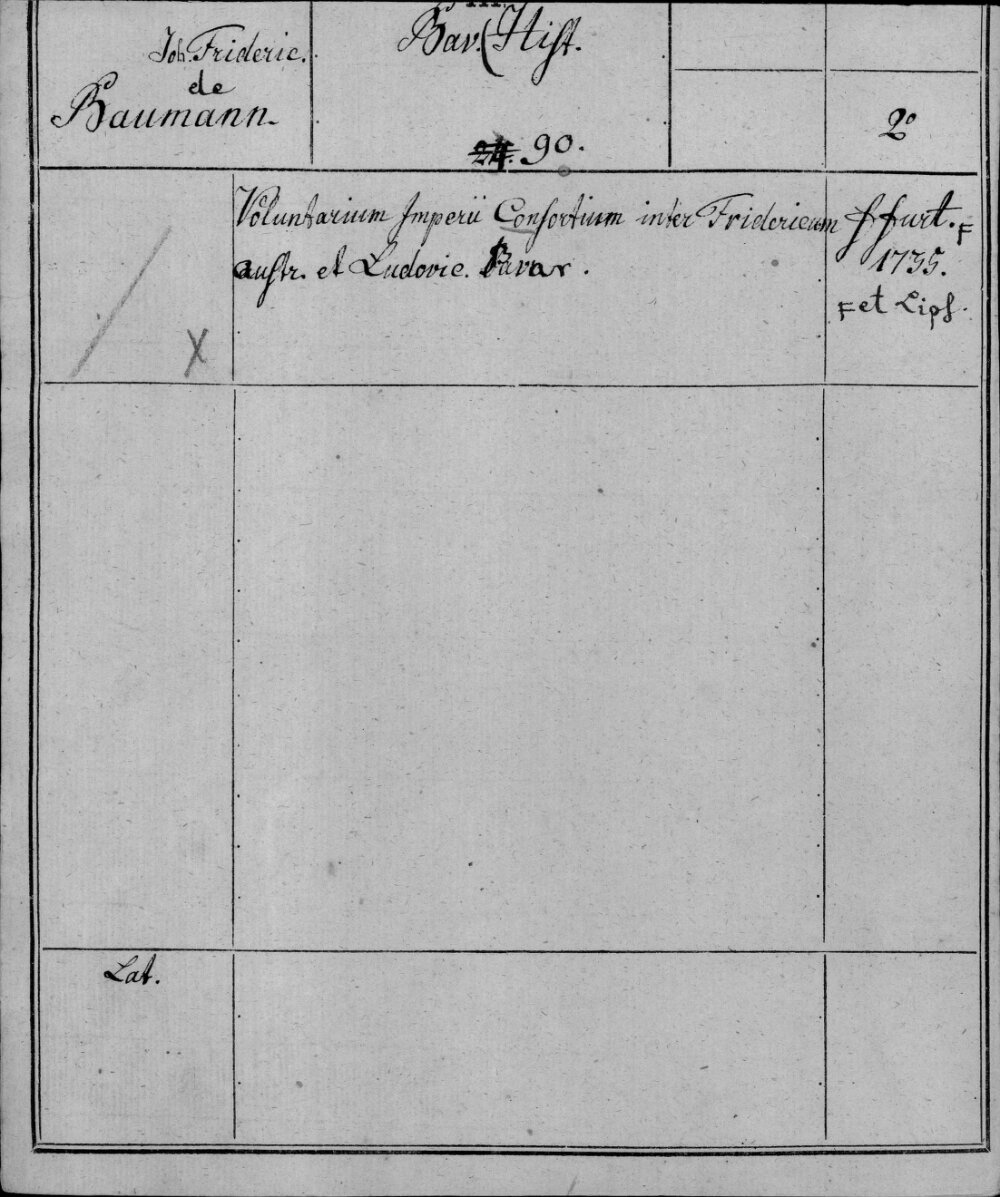 Joh. Frideric.
de
Baumann.
Bav. (Hist.
90.
2º
Voluntarium Imperii Consortium inter Fridericum
austr. et Ludovic. Bavar.
ffurt. F
1735.
F et Lips.
X
Lat.